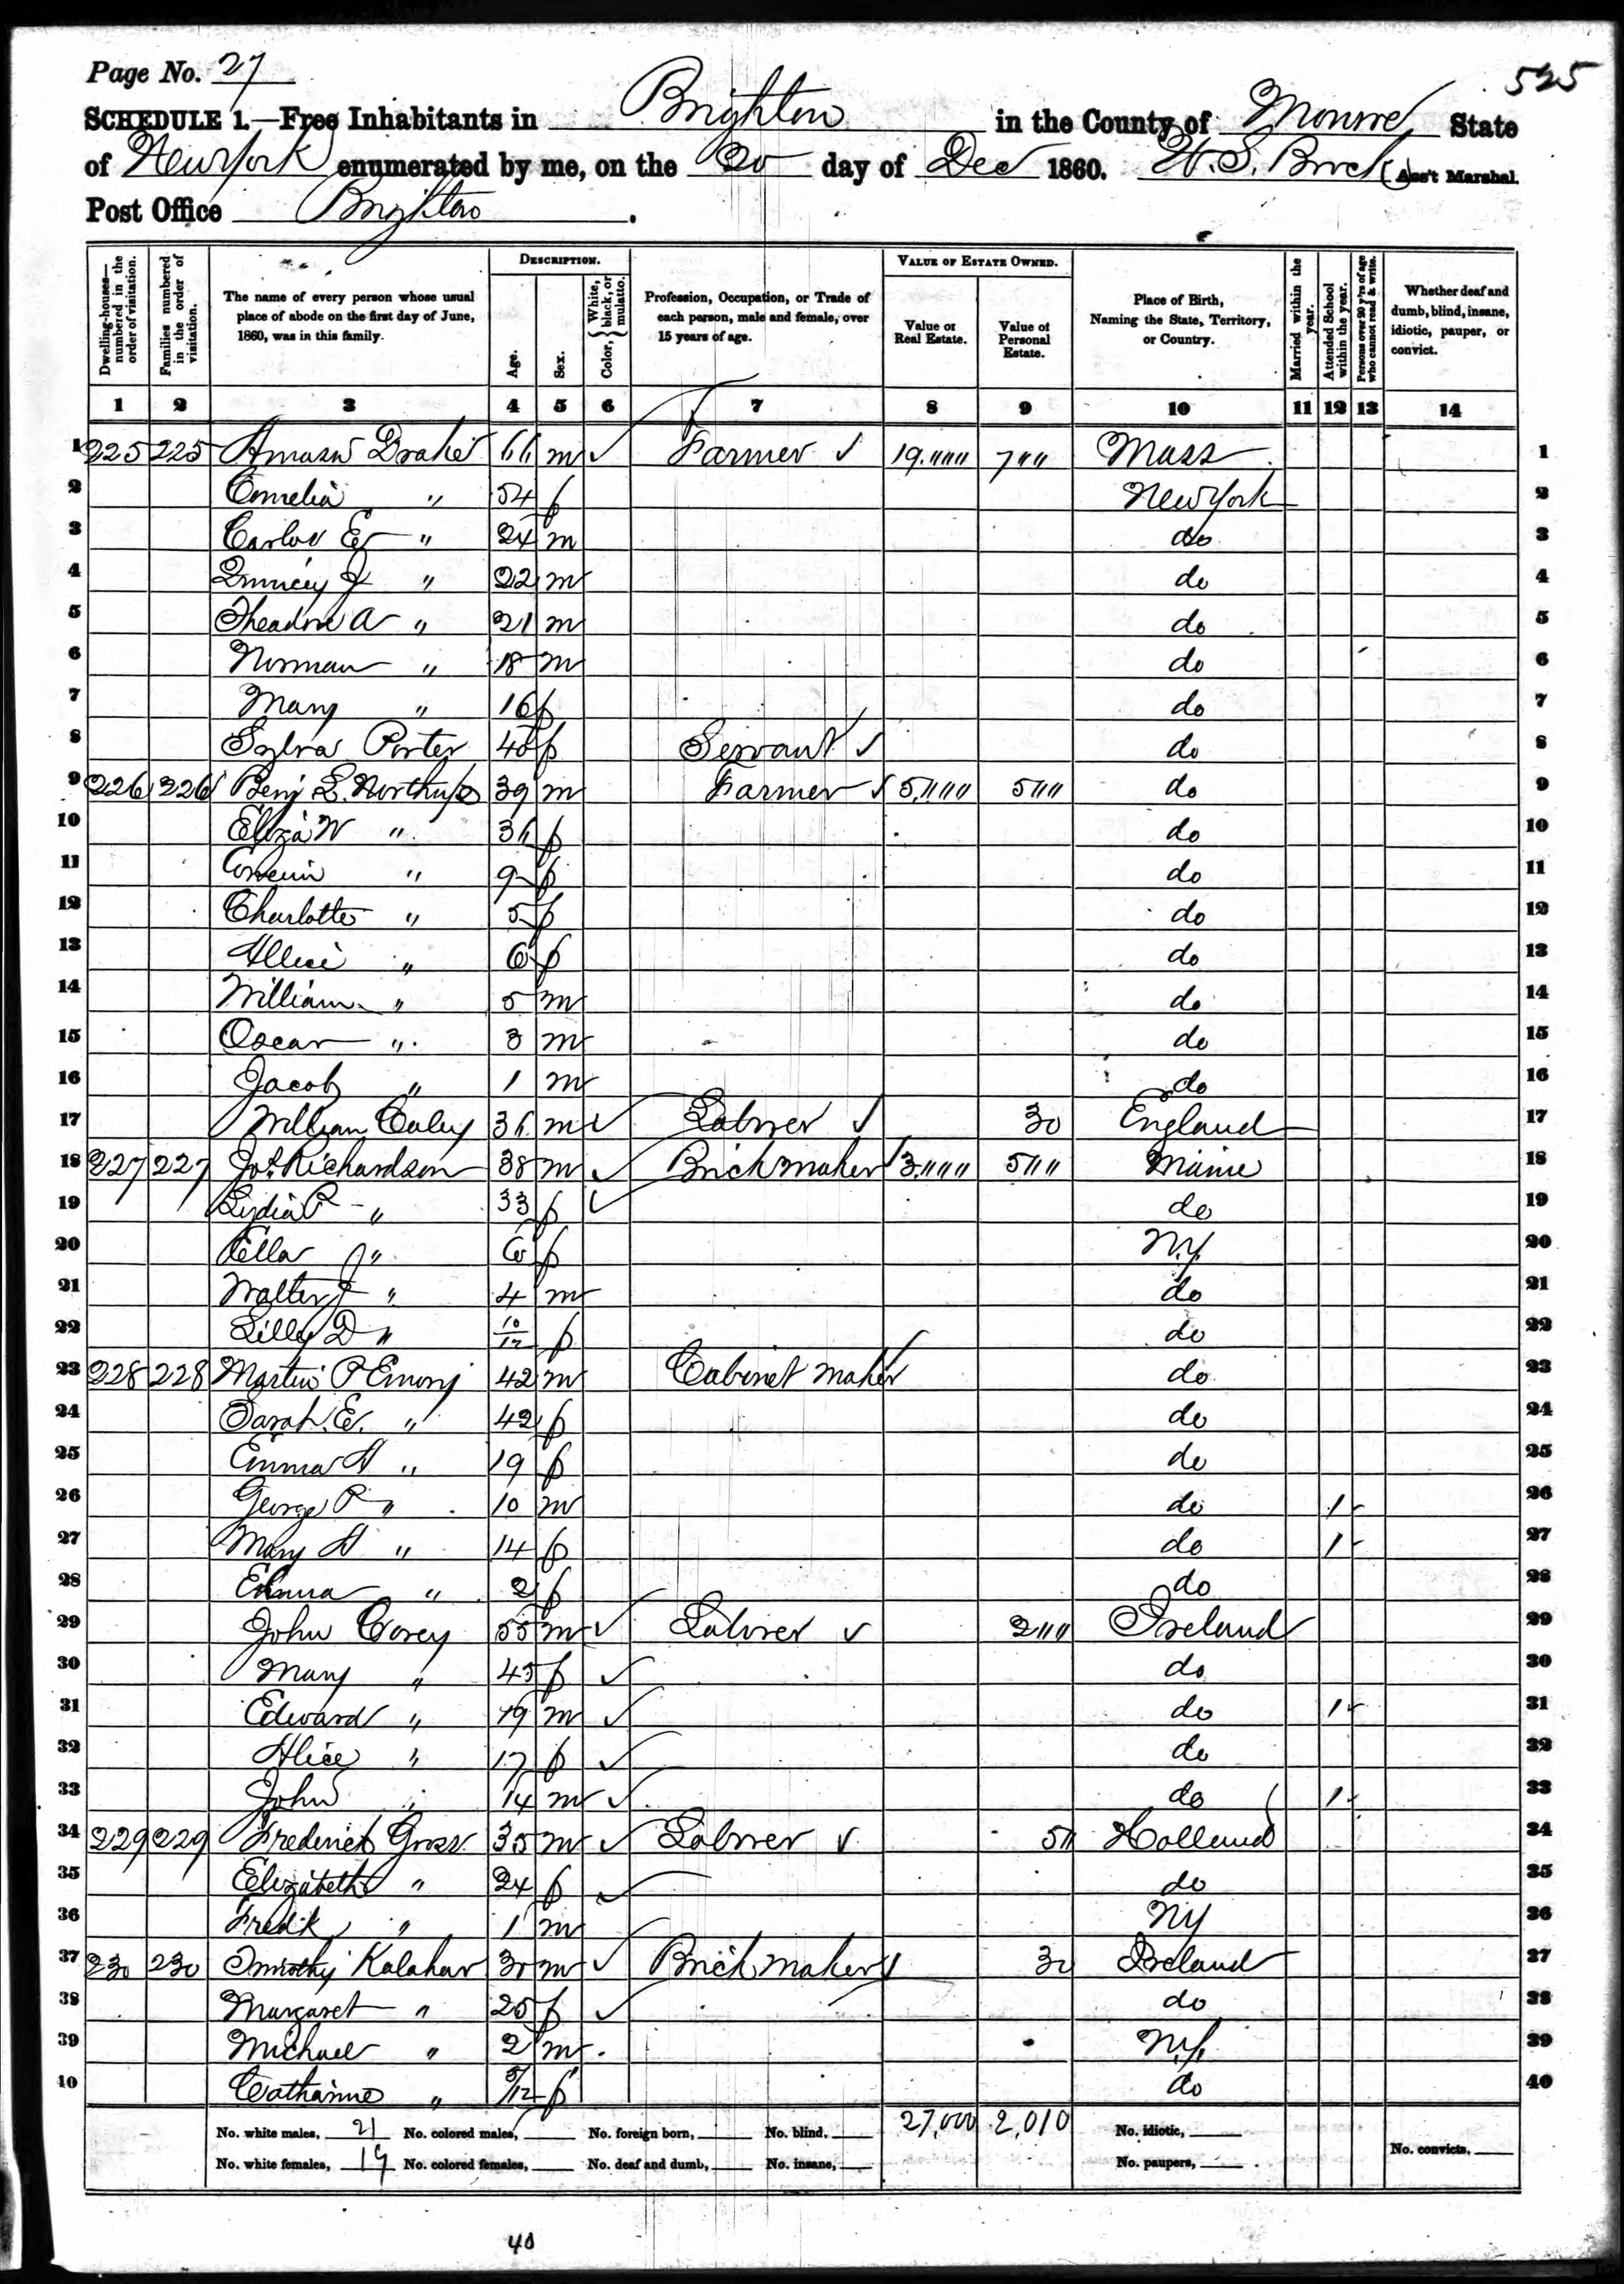 Page No. 27
525
SCHEDULE 1.—Free Inhabitants in Brighton in the County of Monroe State
of New York enumerated by me, on the 20 day of Dec 1860. Ass't Marshal.
Post Office Brighton.
Dwelling-houses—numbered in the order of visitation.
Families numbered in the order of visitation.
The name of every person whose usual place of abode on the first day of June, 1860, was in this family.
DESCRIPTION.
Age.
Sex.
Color, { White, black, or mulatto.
Profession, Occupation, or Trade of each person, male and female, over 15 years of age.
VALUE OF ESTATE OWNED.
Value of Real Estate.
Value of Personal Estate.
Place of Birth, Naming the State, Territory, or Country.
Married within the year.
Attended School within the year.
Persons over 20 y'rs of age who cannot read & write.
Whether deaf and dumb, blind, insane, idiotic, pauper, or convict.
1 2 3 4 5 6 7 8 9 10 11 12 13 14
1 225 225 Amasa Drake 66 m ✓ Farmer ✓ 19,"""" 7"" Mass 1
2 Cornelia " 54 f New York 2
3 Carlos E " 24 m do 3
4 Quincy J " 22 m do 4
5 Theadore A " 21 m do 5
6 Norman " 18 m do 6
7 Mary " 16 f do 7
8 Sylva Porter 40 f Servant ✓ do 8
9 226 226 Benj S. Northup 39 m Farmer ✓ 5,"""" 5"" do 9
10 Eliza W " 36 f do 10
11 " 9 f do 11
12 Charlotte " 5 f do 12
13 Allice " 6 f do 13
14 William " 5 m do 14
15 Oscar " 3 m do 15
16 Jacob " 1 m do 16
17 William Caley 36 m ✓ Labrer ✓ 30 England 17
18 227 227 Jos Richardson 38 m ✓ Brickmaker 3,"""" 5"" Maine 18
19 Lydia P " 33 f ✓ do 19
20 Ella J " 6 f N.Y. 20
21 Walter J " 4 m do 21
22 Lilly D " 10/12 f do 22
23 228 228 Martin P Emory 42 m Cabinet maker do 23
24 Sarah E. " 42 f do 24
25 Emma H " 19 f do 25
26 George P " 10 m do 1 26
27 Mary H " 14 f do 1 27
28 " 2 f do 28
29 John Corey 55 m ✓ Labrer ✓ 2"" Ireland 29
30 Mary " 45 f ✓ do 30
31 Edward " 19 m ✓ do 1 31
32 Alice " 17 f ✓ do 32
33 John " 14 m ✓ do 1 33
34 229 229 Frederick Gross 35 m ✓ Labrer ✓ 5" Holland 34
35 Elizabeth " 24 f ✓ do 35
36 Fredk " 1 m NY 36
37 230 230 Timothy Kalahar 30 m ✓ Brick maker ✓ 30 Ireland 37
38 Margaret " 25 f ✓ do 38
39 Michael " 2 m N.Y. 39
40 Catharine " /12 f do 40
No. white males, 21 No. colored males, No. foreign born, No. blind, 27,000 2,010 No. idiotic,
No. white females, 19 No. colored females, No. deaf and dumb, No. insane, No. paupers, No. convicts,
40